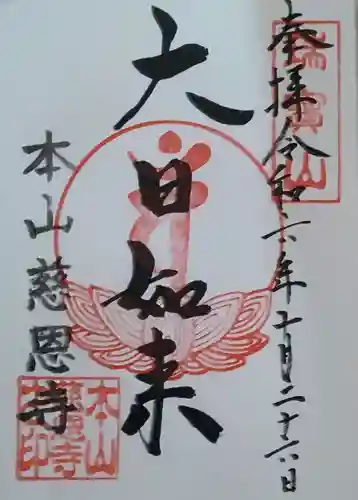 奉拝 令和六年十月二十六日
瑞寳山
大日如来
本山慈恩寺
本山慈恩寺本印